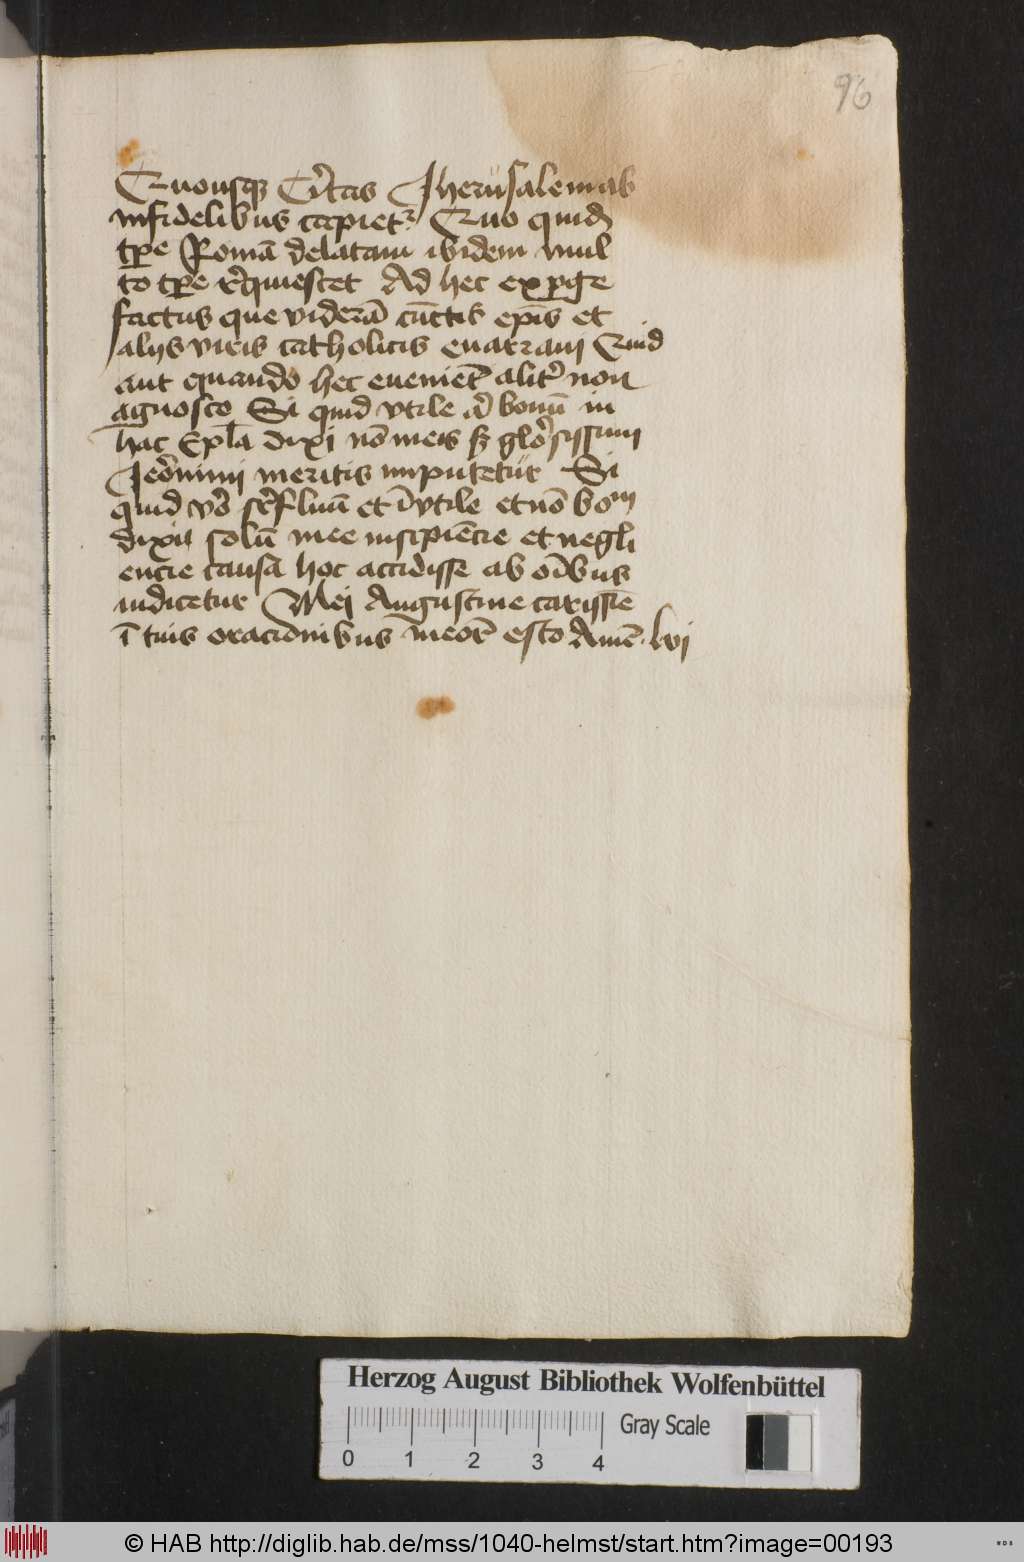 96
Quousq₃ Ci͛tas Jherusalem ab
infidelibus capiet᷑ Quo quidē
tꝑe Romā delatam ibidem mul
to tꝑe r͛quiescet Ad hec exꝑge
factus que viderā cūctis ep̄is et
alijs viris catholicis enarraui Quid
aut quando hec eueniēt alit͛ non
agnosco Si quid vtile u͛l bonū in
hac Ep̄la dixi nō meis sꝫ glo͛sissimi
Jeronimi meritis imputetur Si
quid vo͛ su͛fluū et īvtile et nō bom
dixi solū mee insipiēcie et negli
encie causa hoc accidisse ab oībus
iudicetur Mei Augustine carissīe
ī tuis oracionibus meor̄ esto Amē lvi
Herzog August Bibliothek Wolfenbüttel
Gray Scale
0 1 2 3 4
© HAB http://diglib.hab.de/mss/1040-helmst/start.htm?image=00193